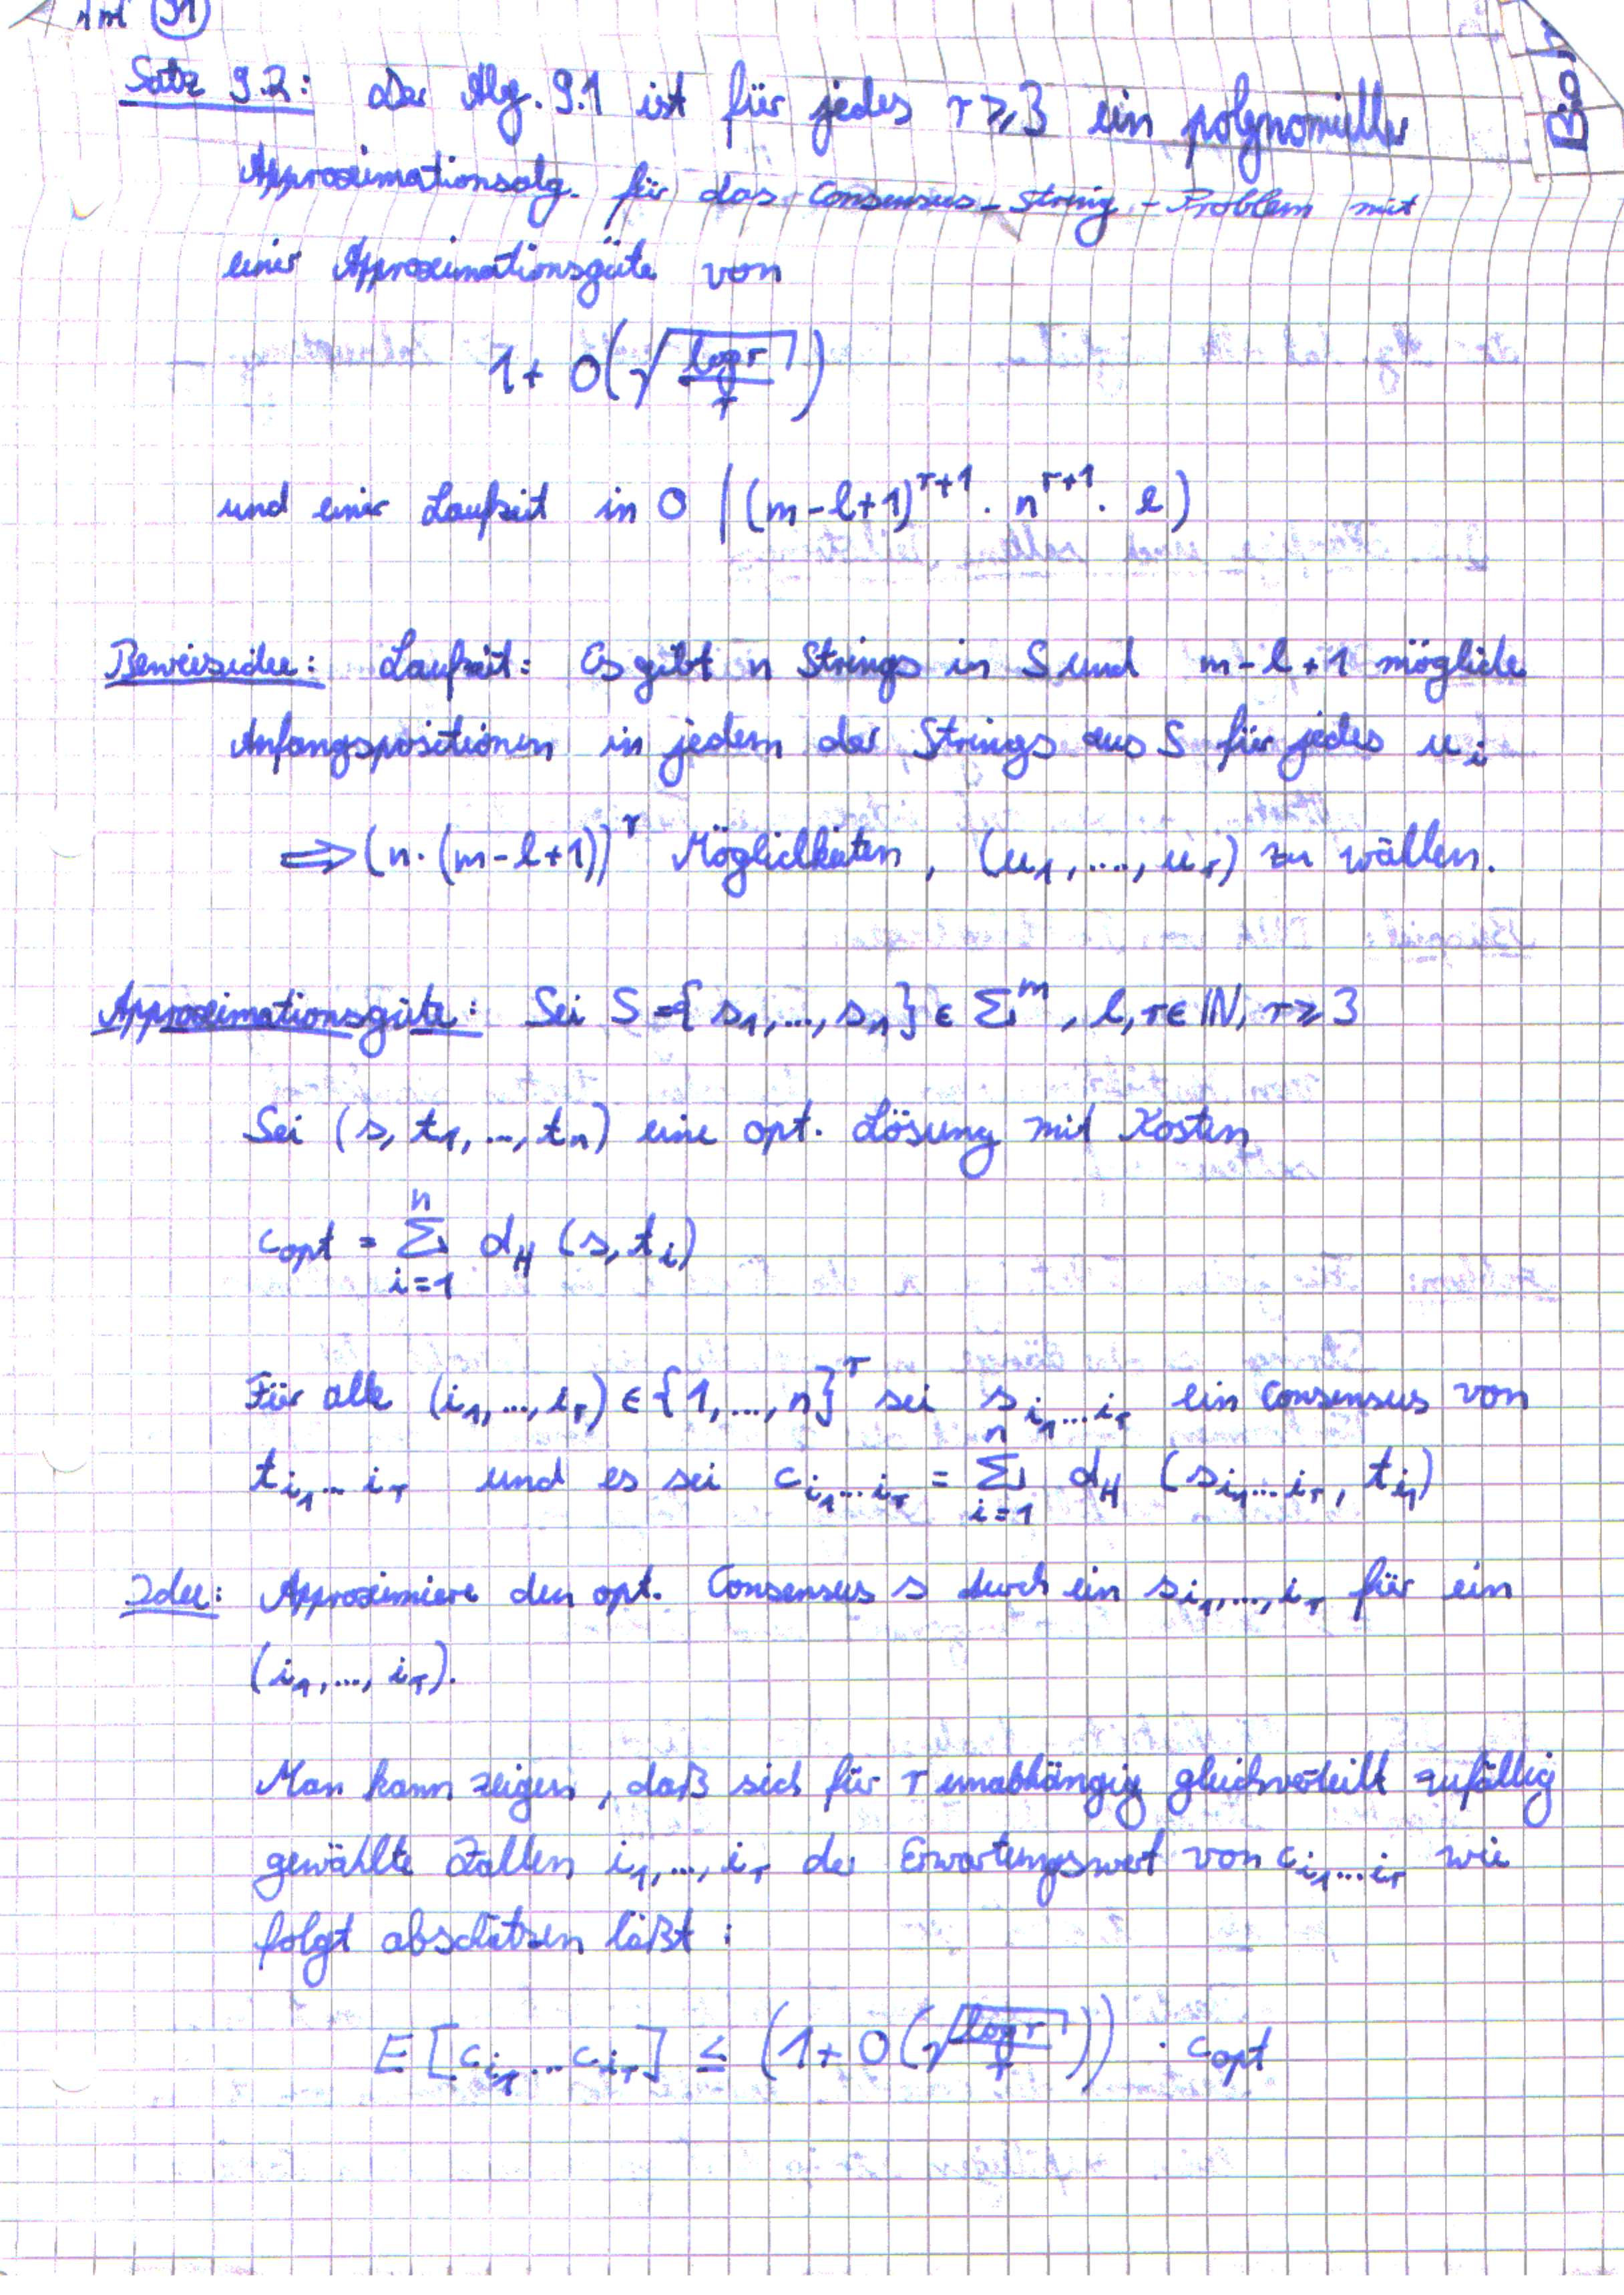 91
Satz 9.2: Der Alg. 9.1 ist für jedes r ≥ 3 ein polynomieller
Approximationsalg. für das Consensus-String-Problem mit
einer Approximationsgüte von
1 + O(√(log r / r))
und einer Laufzeit in O((m-l+1)^{r+1} · n^{r+1} · l)
Beweisidee: Laufzeit: Es gibt n Strings in S und m-l+1 mögliche
Anfangspositionen in jedem der Strings aus S für jedes u_i
⟹ (n·(m-l+1))^r Möglichkeiten, (u_1, ..., u_r) zu wählen.
Approximationsgüte: Sei S = {s_1, ..., s_n} ∈ Σ^m, l, r ∈ ℕ, r ≥ 3
Sei (s, t_1, ..., t_n) eine opt. Lösung mit Kosten
c_opt = Σ_{i=1}^n d_H (s, t_i)
Für alle (i_1, ..., i_r) ∈ {1, ..., n}^r sei s_{i_1...i_r} ein Consensus von
t_{i_1...i_r} und es sei c_{i_1...i_r} = Σ_{i=1}^n d_H (s_{i_1...i_r}, t_{i_1})
Idee: Approximiere den opt. Consensus s durch ein s_{i_1,...,i_r} für ein
(i_1, ..., i_r).
Man kann zeigen, daß sich für r unabhängig gleichverteilt zufällig
gewählte Zahlen i_1, ..., i_r der Erwartungswert von c_{i_1...i_r} wie
folgt abschätzen läßt:
E[c_{i_1}...c_{i_r}] ≤ (1 + O(√(log r / r))) · c_opt